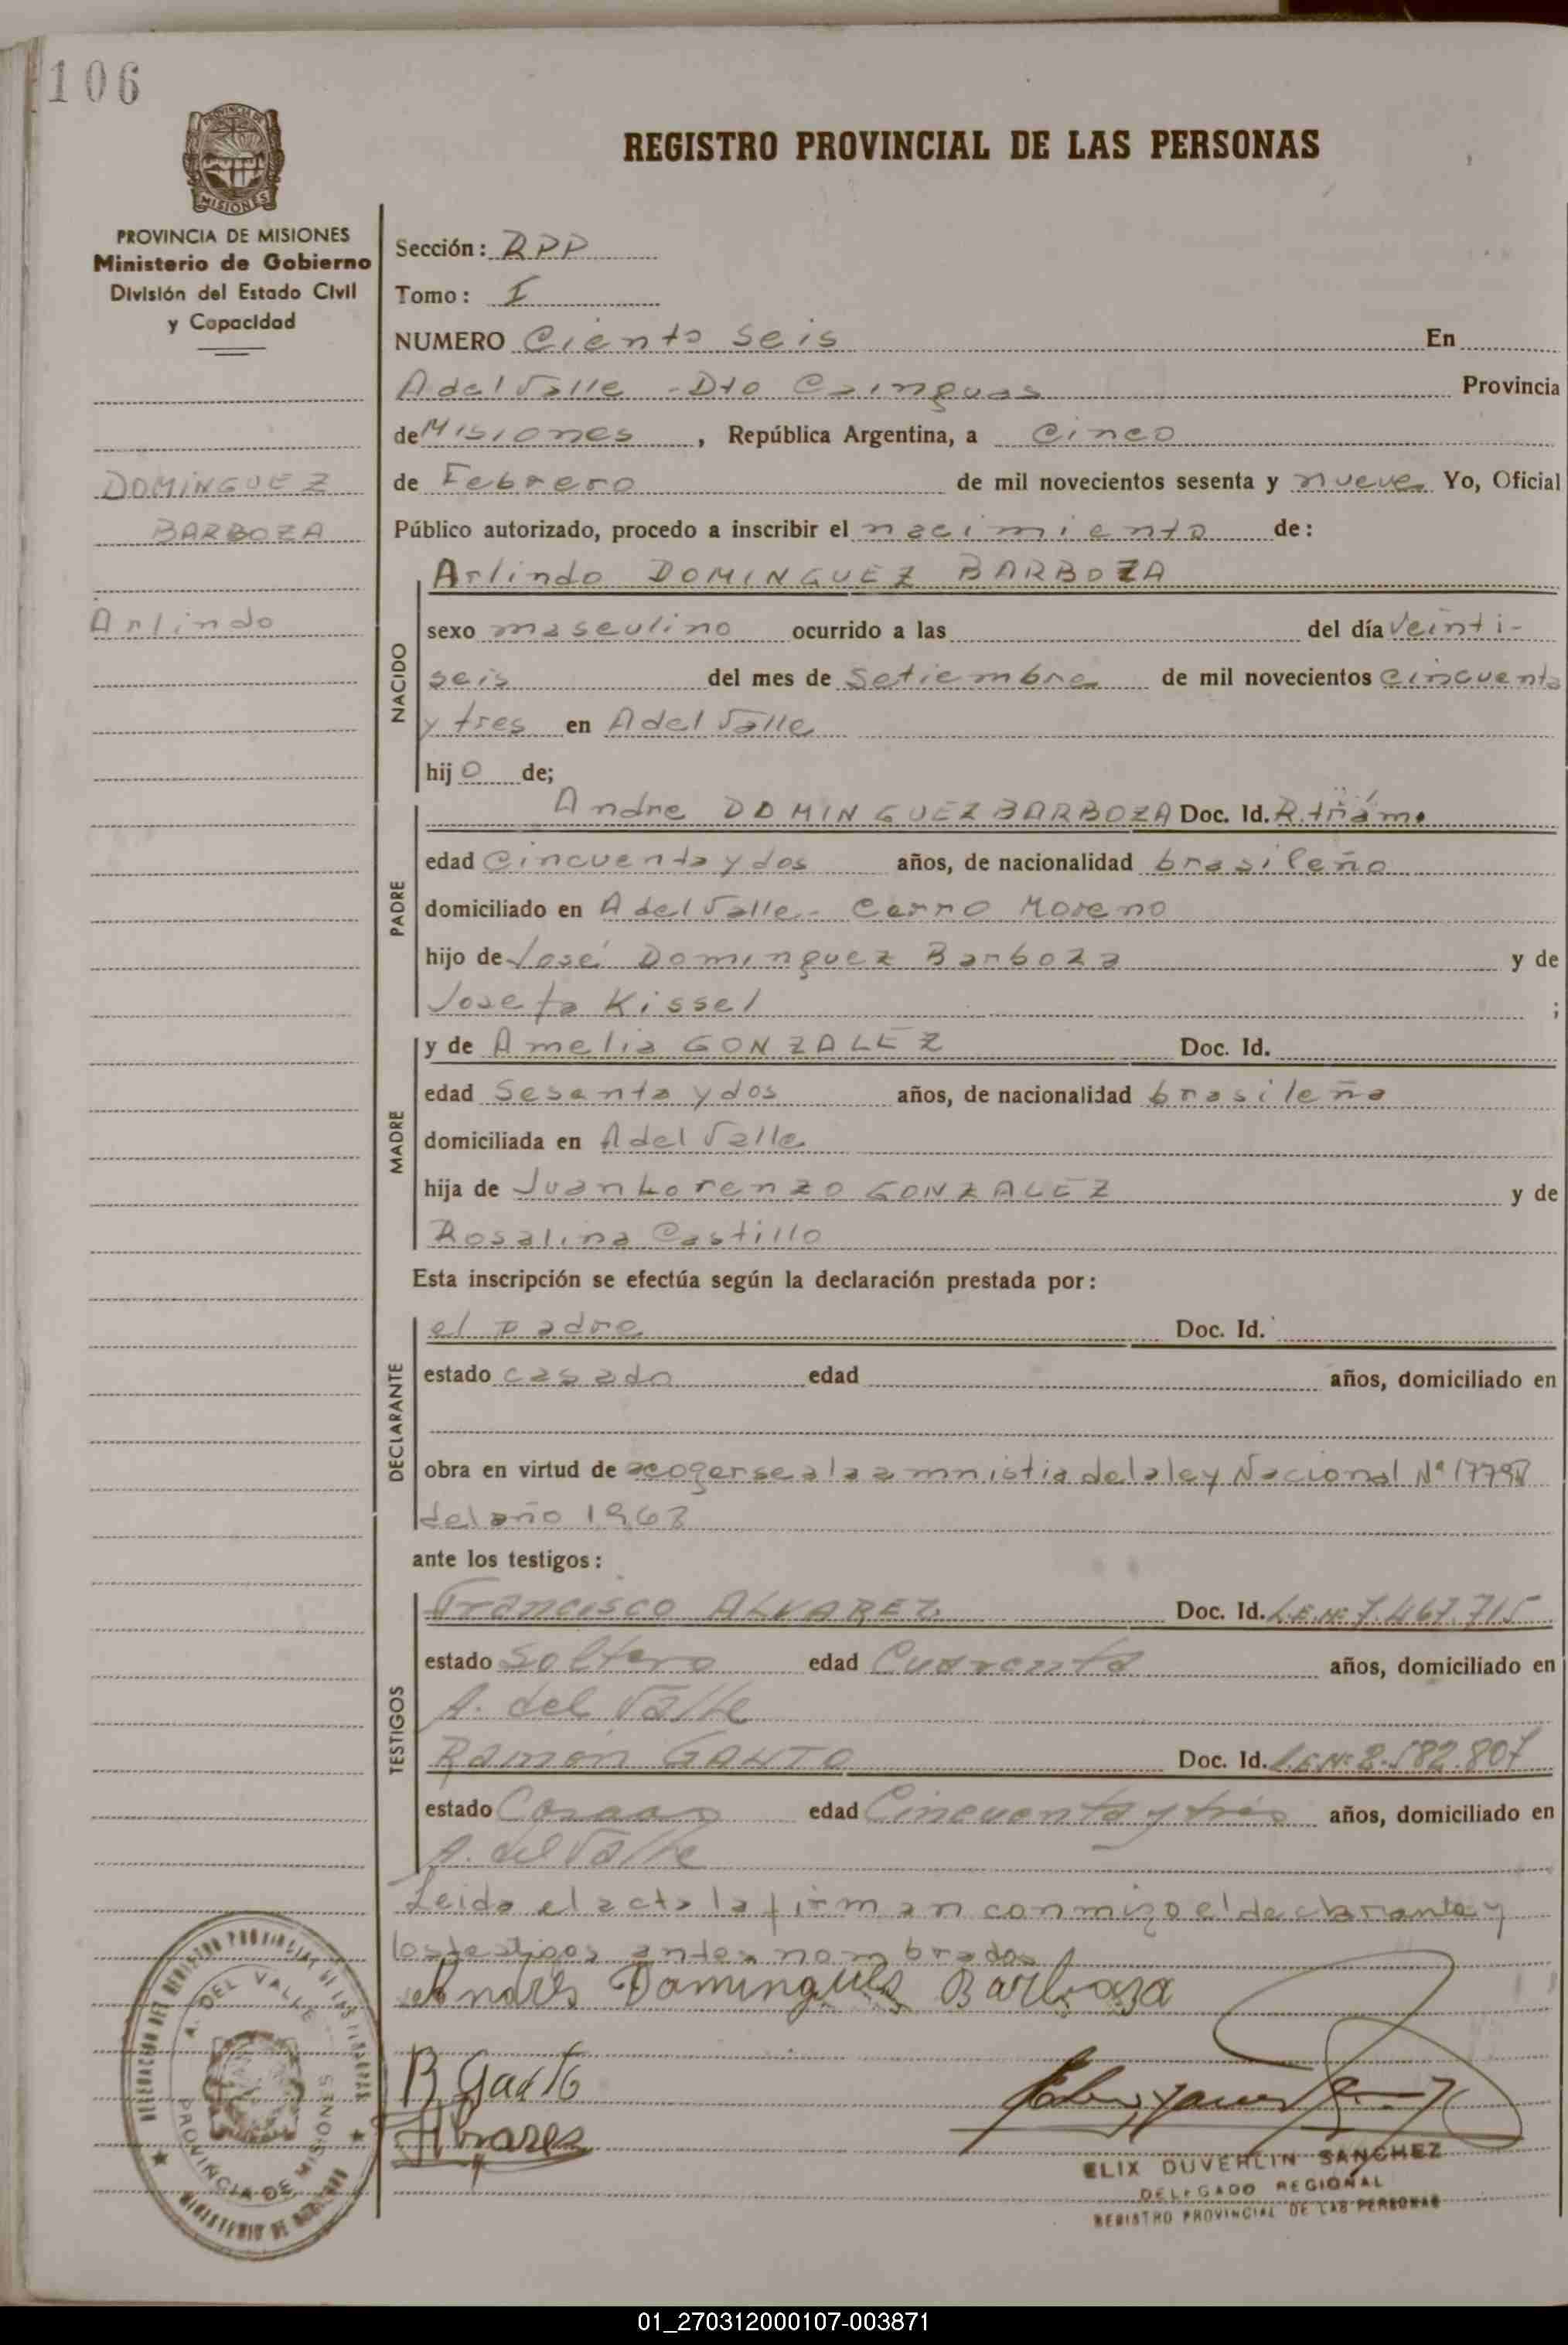 106
PROVINCIA DE MISIONES
REGISTRO PROVINCIAL DE LAS PERSONAS
PROVINCIA DE MISIONES
Ministerio de Gobierno
División del Estado Civil
y Capacidad
DOMINGUEZ
BARBOZA
Arlindo
Sección: RPP
Tomo: I
NUMERO Ciento seis En
A del Valle - Dto Cainguas Provincia
de Misiones, República Argentina, a cinco
de Febrero de mil novecientos sesenta y nueve Yo, Oficial
Público autorizado, procedo a inscribir el nacimiento de:
NACIDO
Arlindo DOMINGUEZ BARBOZA
sexo masculino ocurrido a las del día veinti-
seis del mes de Setiembre de mil novecientos cincuenta
y tres en A del Valle
hijo de;
PADRE
Andre DOMINGUEZ BARBOZA Doc. Id. R. trám.
edad cincuenta y dos años, de nacionalidad brasileño
domiciliado en A del Valle - Cerro Moreno
hijo de José Dominguez Barboza y de
Josefa Kissel ;
MADRE
y de Amelia GONZALEZ Doc. Id.
edad sesenta y dos años, de nacionalidad brasileña
domiciliada en A del Valle
hija de Juan Lorenzo GONZALEZ y de
Rosalina Castillo
Esta inscripción se efectúa según la declaración prestada por:
DECLARANTE
el padre Doc. Id.
estado casado edad años, domiciliado en
obra en virtud de acogerse a la amnistia de la ley Nacional Nº
del año 1968
ante los testigos:
TESTIGOS
Francisco ALVAREZ Doc. Id. L.E.Nº 7.467.715
estado Soltero edad Cuarenta años, domiciliado en
A. del Valle
Ramón GAUTO Doc. Id. L.E.Nº 2.582.807
estado Casado edad Cincuenta y tres años, domiciliado en
A. del Valle
Leida el acta la firman conmigo el declarante y
los testigos antes nombrados
Andrés Domingues Barboza
R Gauto
FAlvarez
ELIX DUVERLIN SANCHEZ
DELEGADO REGIONAL
REGISTRO PROVINCIAL DE LAS PERSONAS
DELEGACION DEL REGISTRO PROVINCIAL DE LAS PERSONAS
A. DEL VALLE
PROVINCIA DE MISIONES
MINISTERIO DE GOBIERNO
01_270312000107-003871